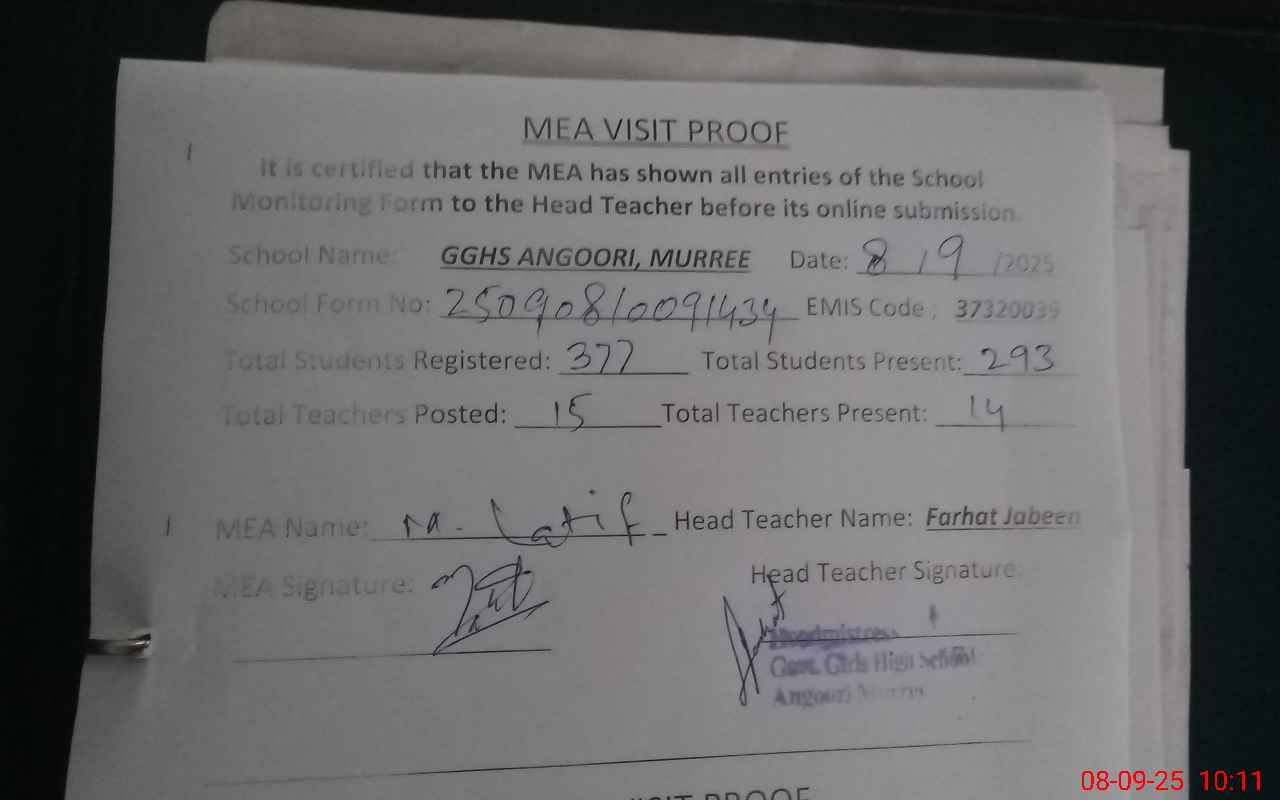 MEA VISIT PROOF
It is certified that the MEA has shown all entries of the School
Monitoring Form to the Head Teacher before its online submission.
School Name: GGHS ANGOORI, MURREE Date: 8/9/2025
School Form No: 25090810091434 EMIS Code: 37320039
Total Students Registered: 377 Total Students Present: 293
Total Teachers Posted: 15 Total Teachers Present: 14
MEA Name: M. Latif Head Teacher Name: Farhat Jabeen
MEA Signature: Head Teacher Signature
Headmistress
Govt. Girls High School
Angouri Murree
VISIT PROOF
08-09-25 10:11